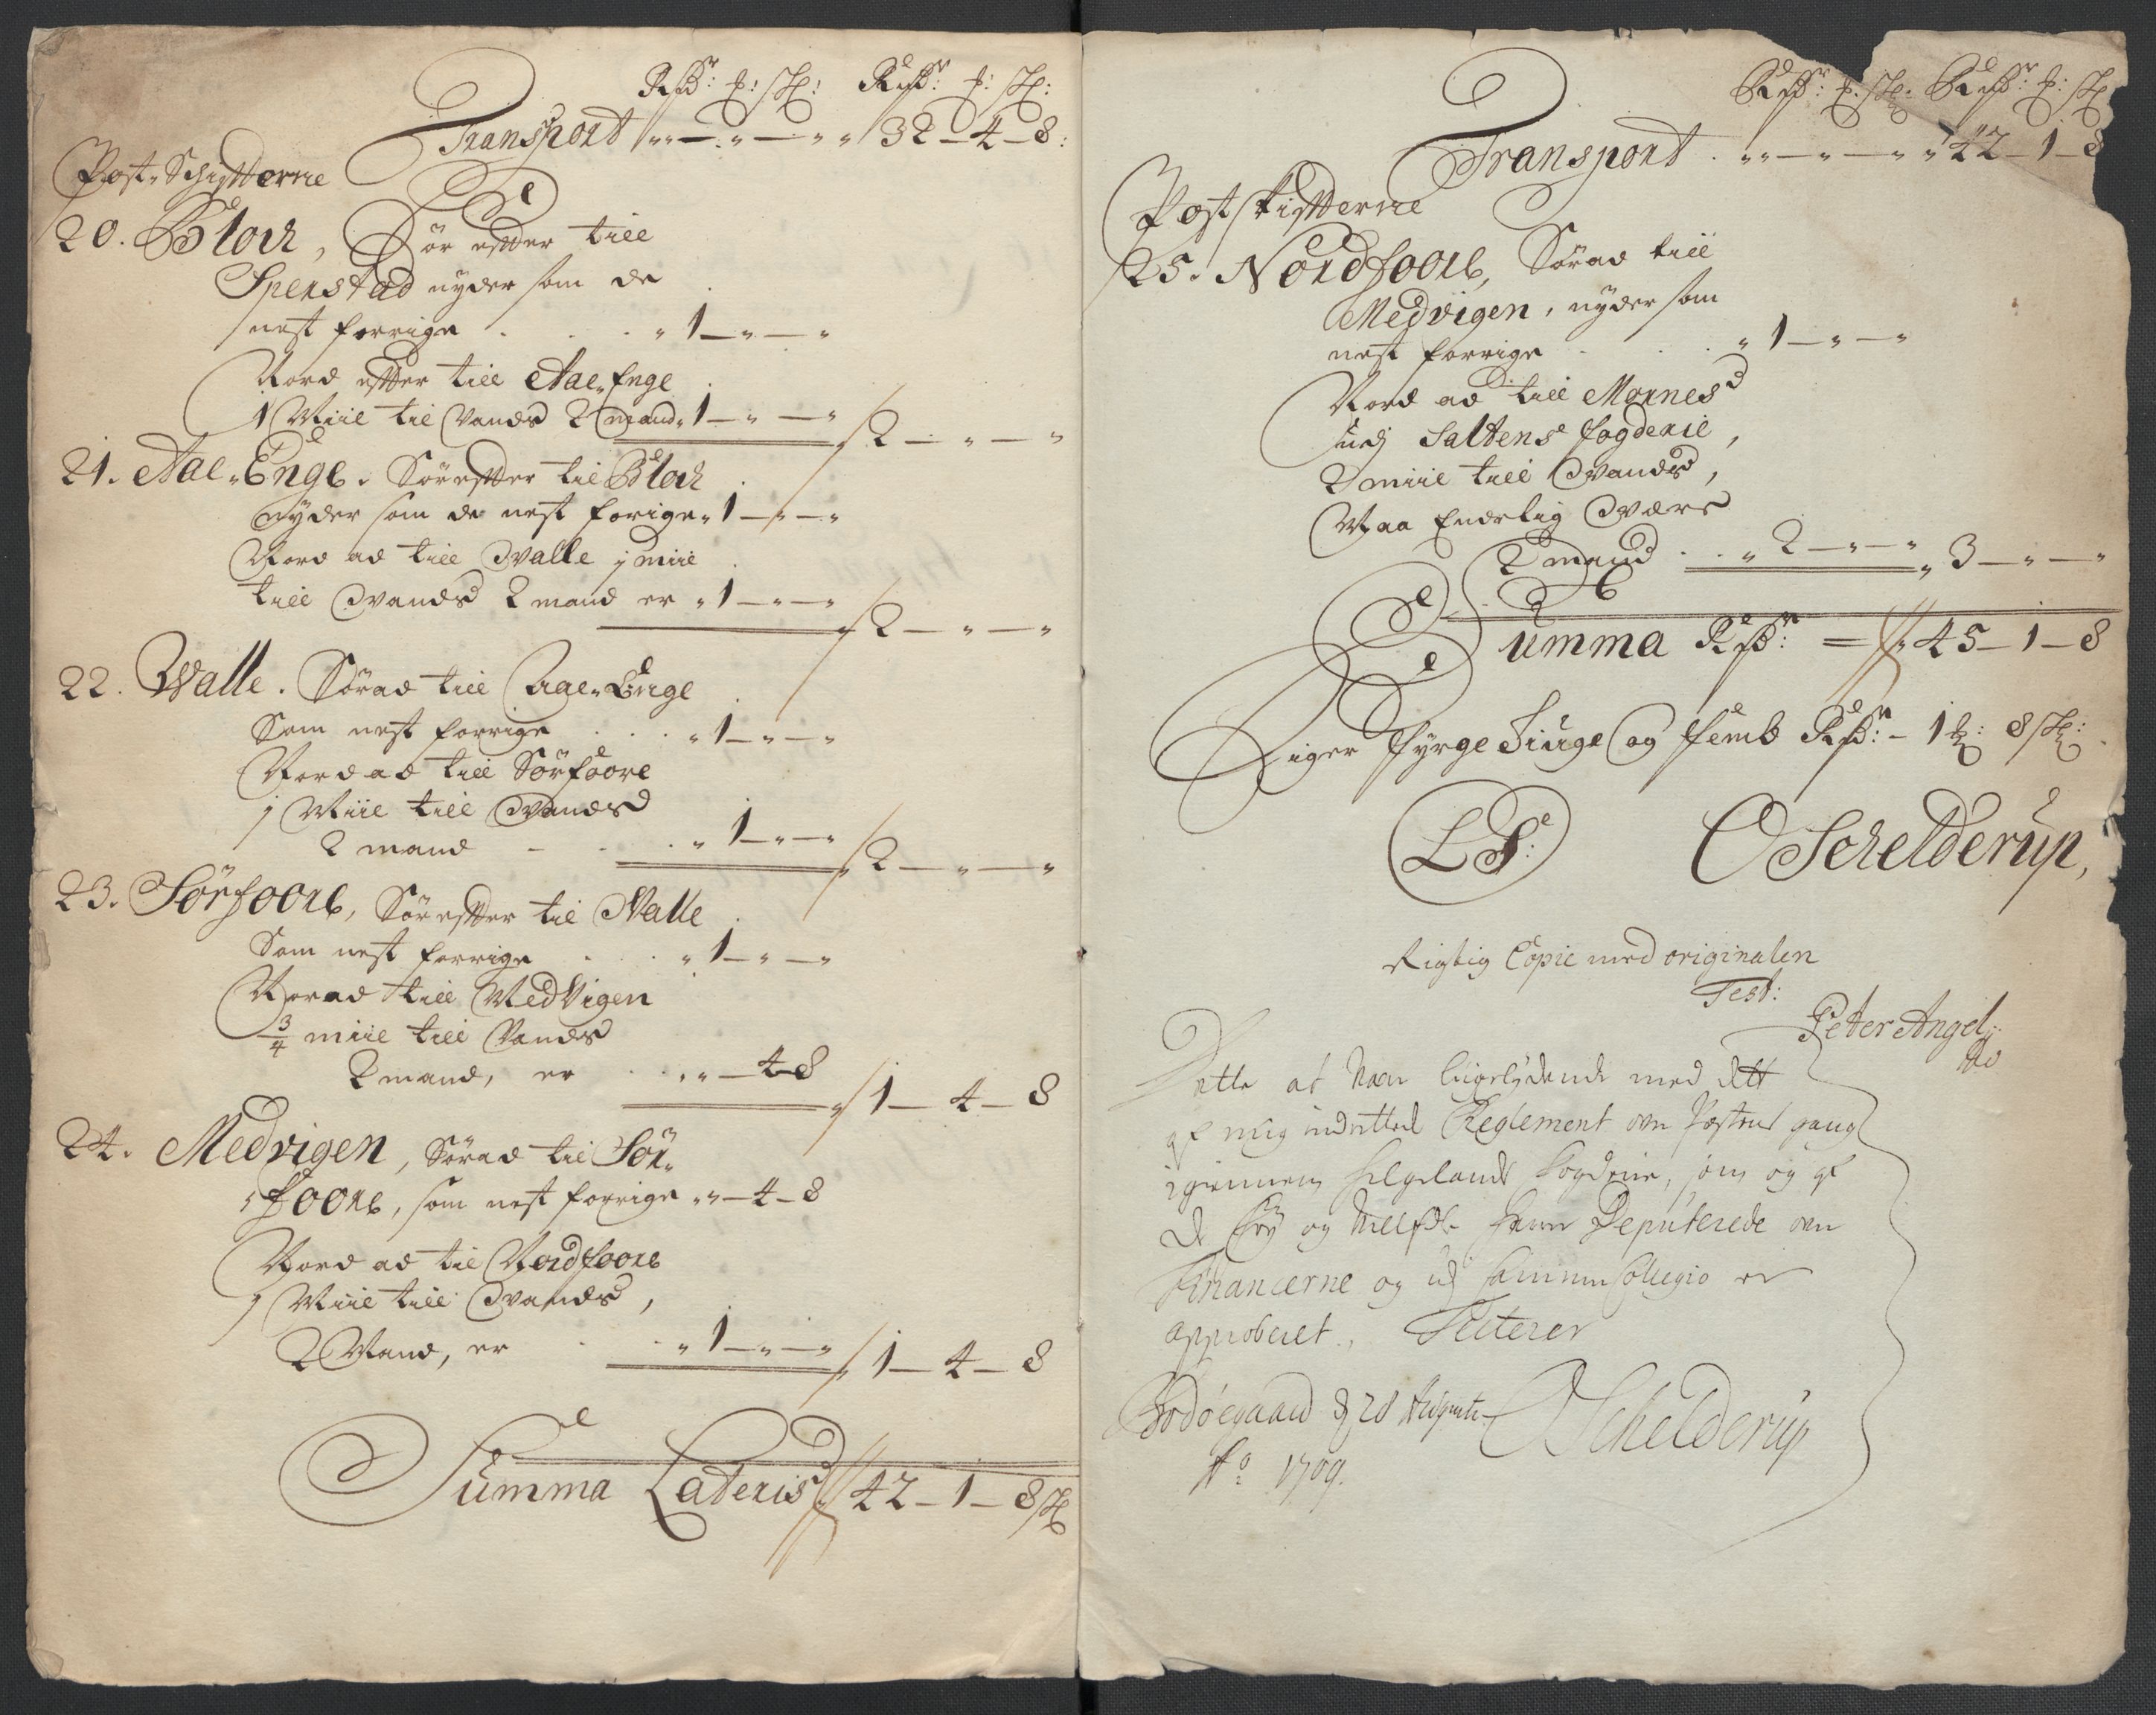 Rdr: ſ: ſk: Rdr: ſ: ſk:
Transport „ „ — „ — „ „ 32 – 4 – 8:
Post-Schifterne
20. Bloch, Sør efter till
Spenstad nyder som de
nest forrige . . . „ 1 – „ – „
Nord efter till Aae-Enge
1 Miil til Vands 2 mand „ 1 – „ – „ „ 2 – „ – „
21. Aae-Enge. Sør efter til Bloch
nyder som de nest forige „ 1 – „ – „
Nord ad till Walle 1 miil
till Vands 2 mand er „ 1 – „ – „ „ 2 – „ – „
22. Walle. Sørad till Aae-Enge
Som nest forrige . . . „ 1 – „ – „
Nord ad till Sørfoore
1 Miil till Vands
2 mand – . . „ 1 – „ – „ „ 2 – „ – „
23. Sørfoore, Sør efter til Walle
Som nest forrige . . „ 1 – „ – „
Norad till Medvigen
3/4 miil till Vands
2 mand, er . . „ „ – 4 – 8 „ 1 – 4 – 8
24. Medvigen, Sørad til Sør-
foore, som nest forrige „ „ – 4 – 8
Nord ad til Nordfoore
1 Miil till Vands,
2 Mand, er . . „ 1 – „ – „ „ 1 – 4 – 8
Summa Lateris „ 42 – 1 – 8 ſk
Rdr: ſ: ſk: Rdr: ſ: ſk
Transport . „ „ – „ – „ „ 42 – 1 – 8
Postskifterne
25. Nordfoore, Sørad till
Medvigen, nyder som
nest forrige . . . „ 1 – „ – „
Nord ad till Mornes
udj Saltens fogderie,
2 miil till Vands,
Maa Enerlig Være
2 mand . . „ 2 – „ – „ „ 3 – „ – „
Summa Rdr: = „ 45 – 1 – 8
Siger fyrgetiuge og femb Rdr: – 1 ſ: 8 ſk:
LS: O Schelderup,
Rigtig Copie med originalen
Test:
Peter Angel
Dette at Være liigelydende med dett
af mig indrettede Reglement over Postens gang
igiennem Helgelands Fogderie, som og af
De Høy og Velb: Herrer Deputerede over
Financerne og udj Cammer Collegio er
approberet, Testerer
Bodøegaard d 28 Augusti
Ao 1709. O Schelderup